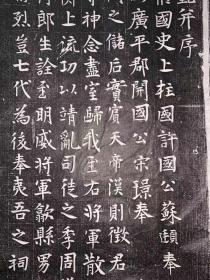 并序
國史上柱國許國公蘇頲奉
廣平郡開國公宋璟奉
之儲后實賓天帝漢則徵君
守神念盡室歸我至右將軍散
上流功以靖亂司徒之季周
郎生詮至明威將軍歙縣男
烈豈七代為後奉夷吾之祠